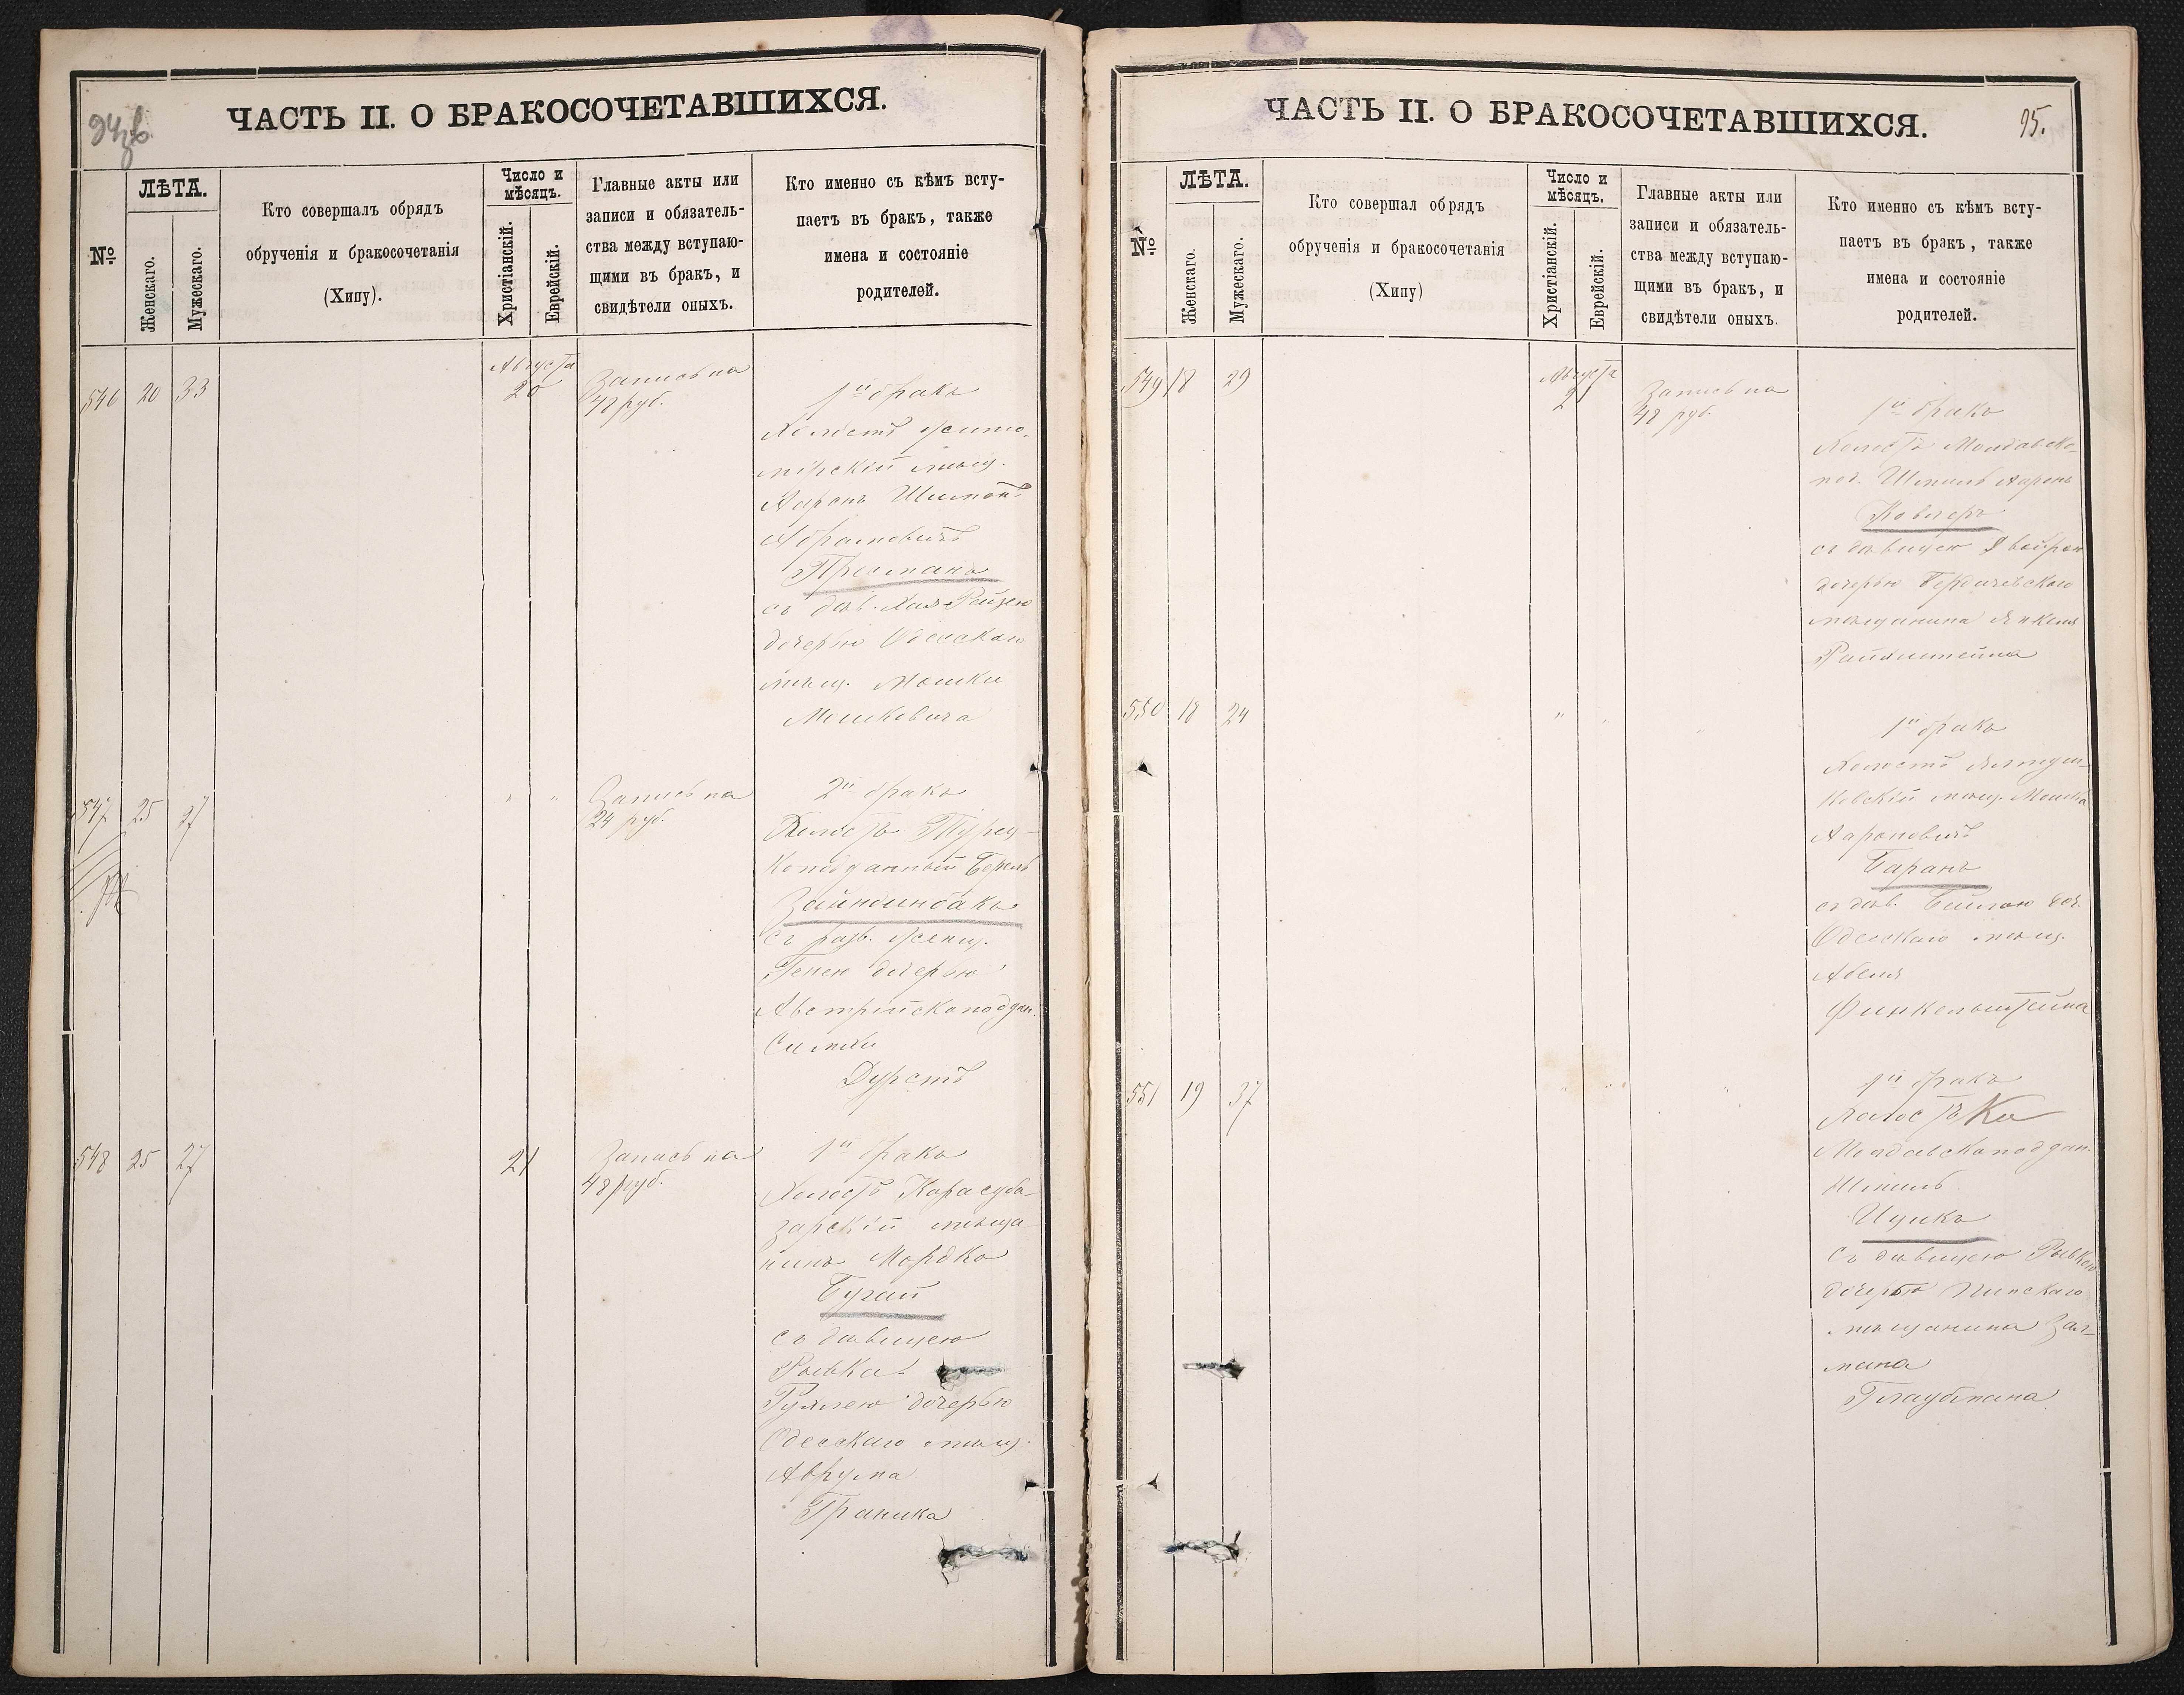 ЧАСТЬ II. О БРАКОСОЧЕТАВШИХСЯ.
№
ЛѢТА.
Женскаго.
Мужескаго.
Кто совершалъ обрядъ
обрученія и бракосочетанія
(Хипу).
Число и
мѣсяцъ.
Христіанскій.
Еврейскій.
Главные акты или
записи и обязатель-
ства между вступаю-
щими въ бракъ, и
свидѣтели оныхъ.
Кто именно съ кѣмъ всту-
паетъ въ бракъ, также
имена и состояніе
родителей.
546 20 33
Августа
20
Запись на
48 руб.
1й бракъ
Холостъ Жито-
мірскій мѣщ.
Ааронъ Шимонъ
Абрамовичъ
съ дѣв. Хая Рейзею
дочерью Одесскаго
мѣщ. Мошки
Мошковича
547 25 27
" "
Запись на
24 руб.
2й бракъ
Холостъ Турец-
коподданный Берель
Зайндинбакъ
съ разв. женщ.
Генен дочерью
Австрійскоподдан.
Симхи
Дурстъ
548 25 27
21
Запись на
48 руб.
1й бракъ
Холостъ Карасуба-
зарскій мѣща-
нинъ Мордко
Бугай
съ дѣвицею
Рывка
Рухлею дочерью
Одесскаго мѣщ.
Аврума
Граника
ЧАСТЬ II. О БРАКОСОЧЕТАВШИХСЯ.
95.
№
ЛѢТА.
Женскаго.
Мужескаго.
Кто совершал обрядъ
обрученія и бракосочетанія
(Хипу)
Число и
мѣсяцъ.
Христіанскій.
Еврейскій.
Главные акты или
записи и обязатель-
ства между вступаю-
щими въ бракъ, и
свидѣтели оныхъ.
Кто именно съ кѣмъ всту-
паетъ въ бракъ, также
имена и состояніе
родителей.
549 18 29
Августа
21
Запись на
48 руб.
1й бракъ
Холостъ Молдавско-
под. Шмиль Ааронъ
Ковлеръ
съ дѣвицею Двойрою
дочерью Бердичевскаго
мѣщанина Янкеля
Райхштейна
550 18 24
" " "
1й бракъ
Холостъ
ковскій мѣщ. Мошко
Аароновичъ
Баранъ
съ дѣв. Бейлою доч.
Одесскаго мѣщ.
Абеля
Финкельштейна
551 19 37
" " "
1й бракъ
Холостъ Ко
Молдавскоподдан.
Шмиль
Ицикъ
съ дѣвицею Рывкою
дочерью Пинскаго
мѣщанина Зал-
мана
Глаубмана